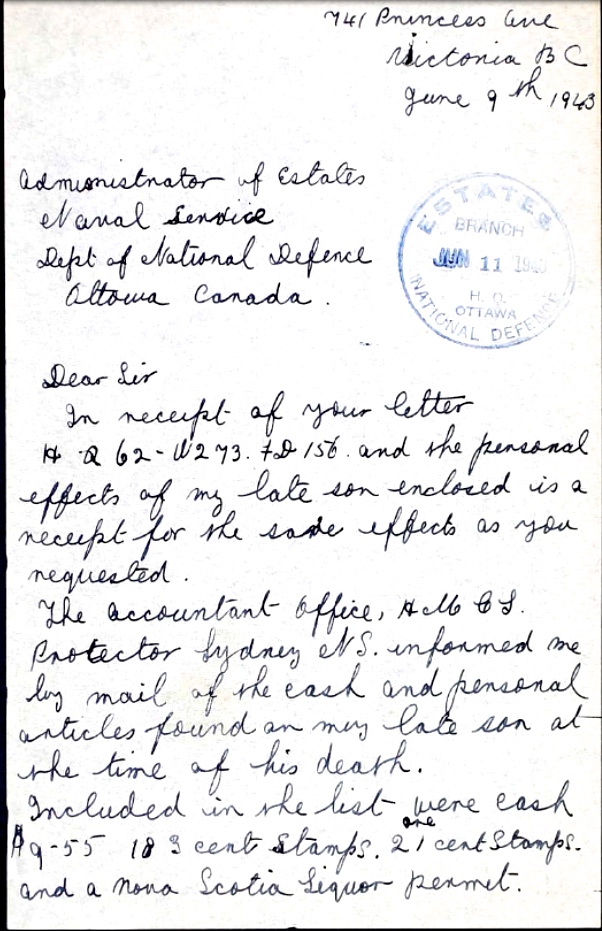 741 Princess Ave
Victoria B C
June 9th, 1943
Administrator of Estates
Naval Service
Dept of National Defence
Ottawa Canada.
ESTATES
BRANCH
JUN 11 194
H. Q.
OTTAWA
NATIONAL DEFENCE
Dear Sir
In receipt of your letter
H Q 62-W273. FD 156. and the personal
effects of my late son enclosed is a
receipt for the same effects as you
requested.
The accountant Office, H M C S.
Protector Sydney N S. informed me
by mail of the cash and personal
articles found on my late son at
the time of his death.
Included in the list were cash
9-55 18 3 cent Stamps. 2 one 1 cent Stamps.
and a Nova Scotia Liquor permit.